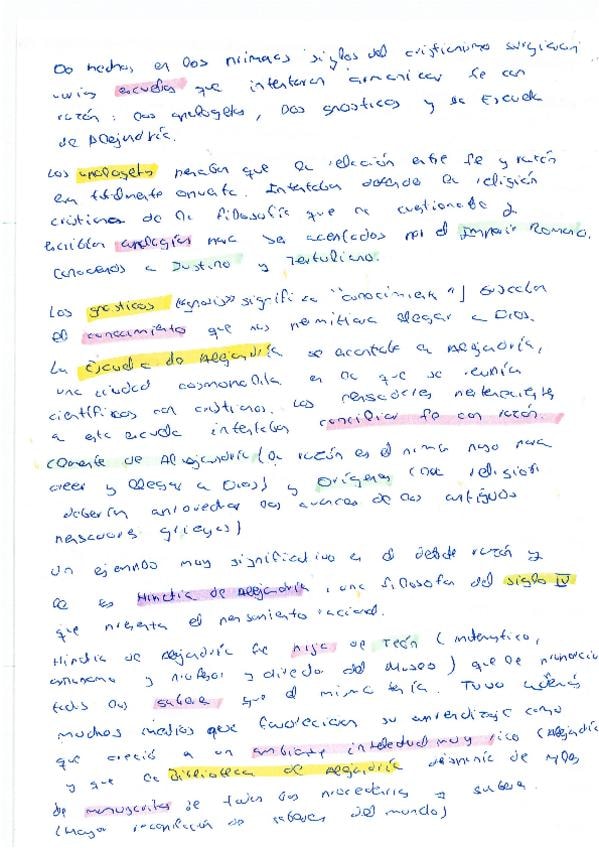 De hecho, en los primeros siglos del cristianismo surgieron
varias escuelas que intentaron armonizar fe con
razón: los apologetas, los gnósticos y la Escuela
de Alejandría.
Los apologetas pensaban que la relación entre fe y razón
era totalmente opuesta. Intentaban defender la religión
cristiana de la filosofía que la cuestionaba y
escribían apologías para ser aceptados por el Imperio Romano.
Conocemos a Justino y Tertuliano.
Los gnósticos (gnosis» significa "conocimiento") buscaban
el conocimiento que nos permitiera llegar a Dios.
La Escuela de Alejandría se asentaba en Alejandría,
una ciudad cosmopolita en la que se reunía
científicos con cristianos. Los pensadores pertenecientes
a esta escuela intentaban conciliar fe con razón.
Clemente de Alejandría (la razón es el primer paso para
creer y llegar a Dios) y Orígenes (la religión
debería aprovechar los avances de los antiguos
pensadores griegos)
Un ejemplo muy significativo en el debate razón y
fe es Hipatia de Alejandría, una filósofa del siglo IV
que presenta el pensamiento racional.
Hipatia de Alejandría fue hija de Teón (matemático,
astrónomo y profesor y director del Museo) que le proporcionó
todos los saberes que el mismo tenía. Tuvo además
muchos medios que favorecían su aprendizaje como
que creció en un ambiente intelectual muy rico (Alejandría
y que la Biblioteca de Alejandría disponía de miles
de manuscritos de todas las procedencias y saberes.
(Mayor recopilación de saberes del mundo)